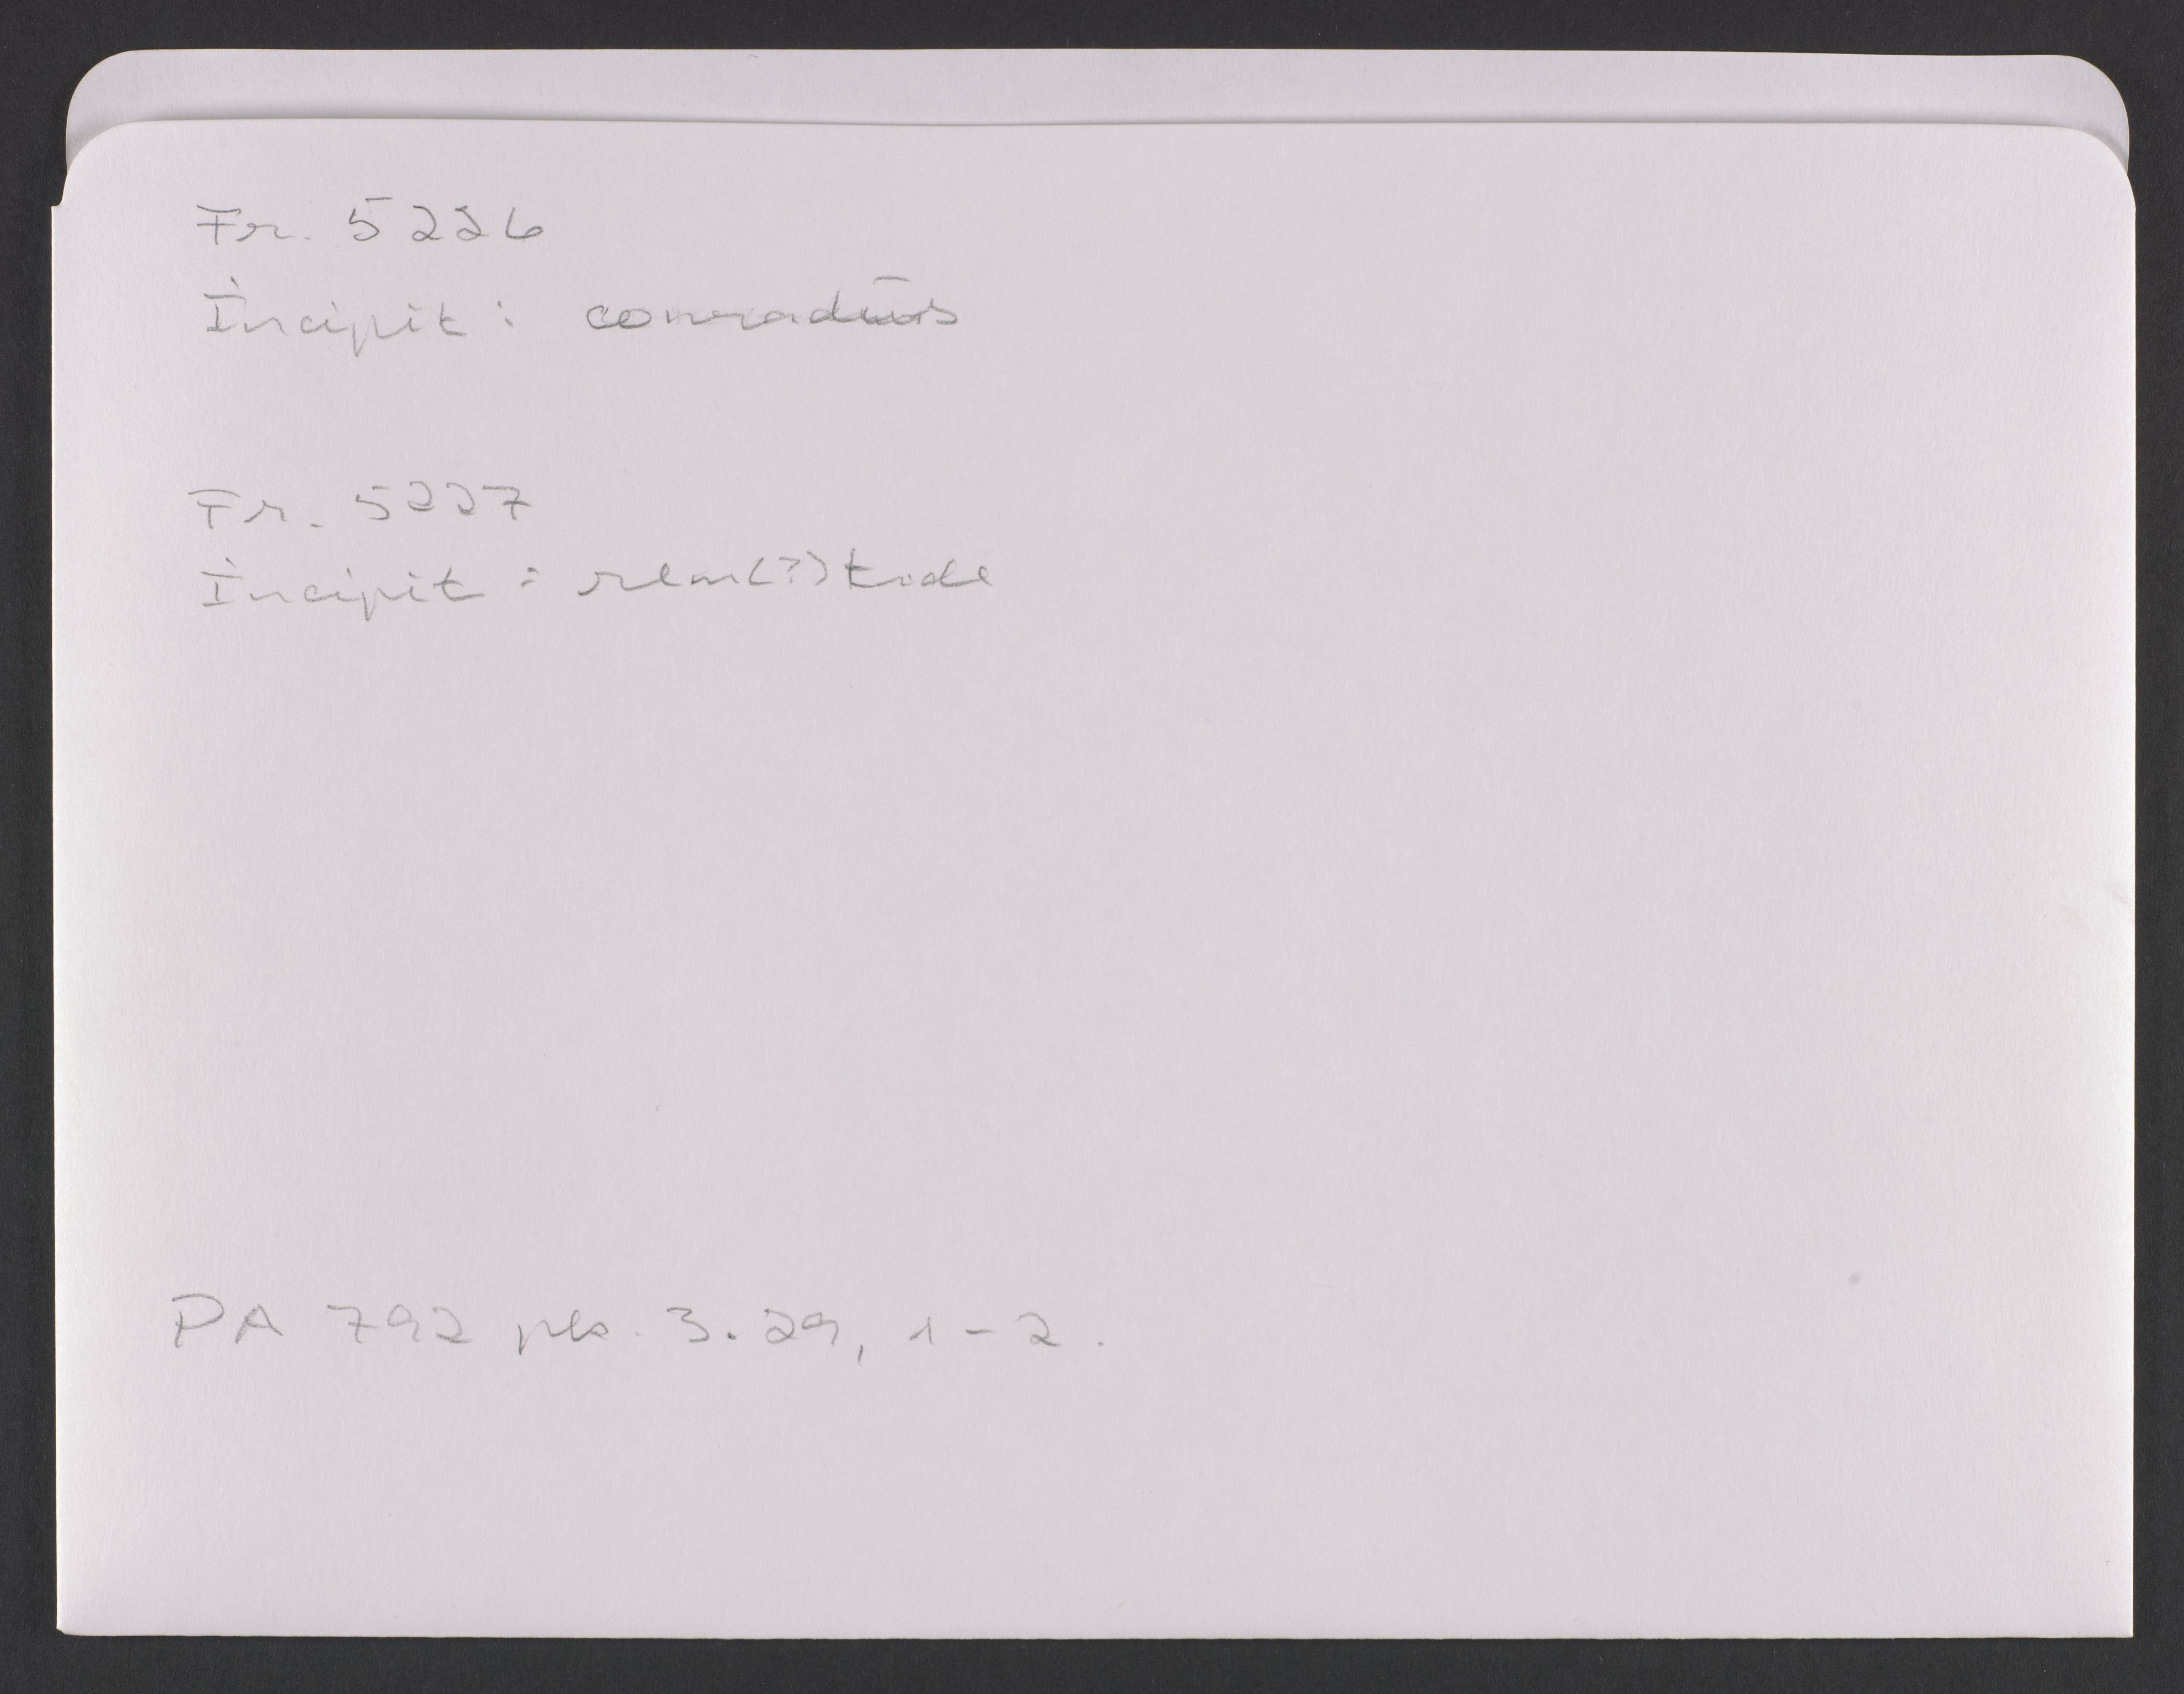 Fr. 5226
Incipit : conradūs
Fr. 5227
Incipit : rem(?)tude
PA 792 pk. 3.29, 1-2.